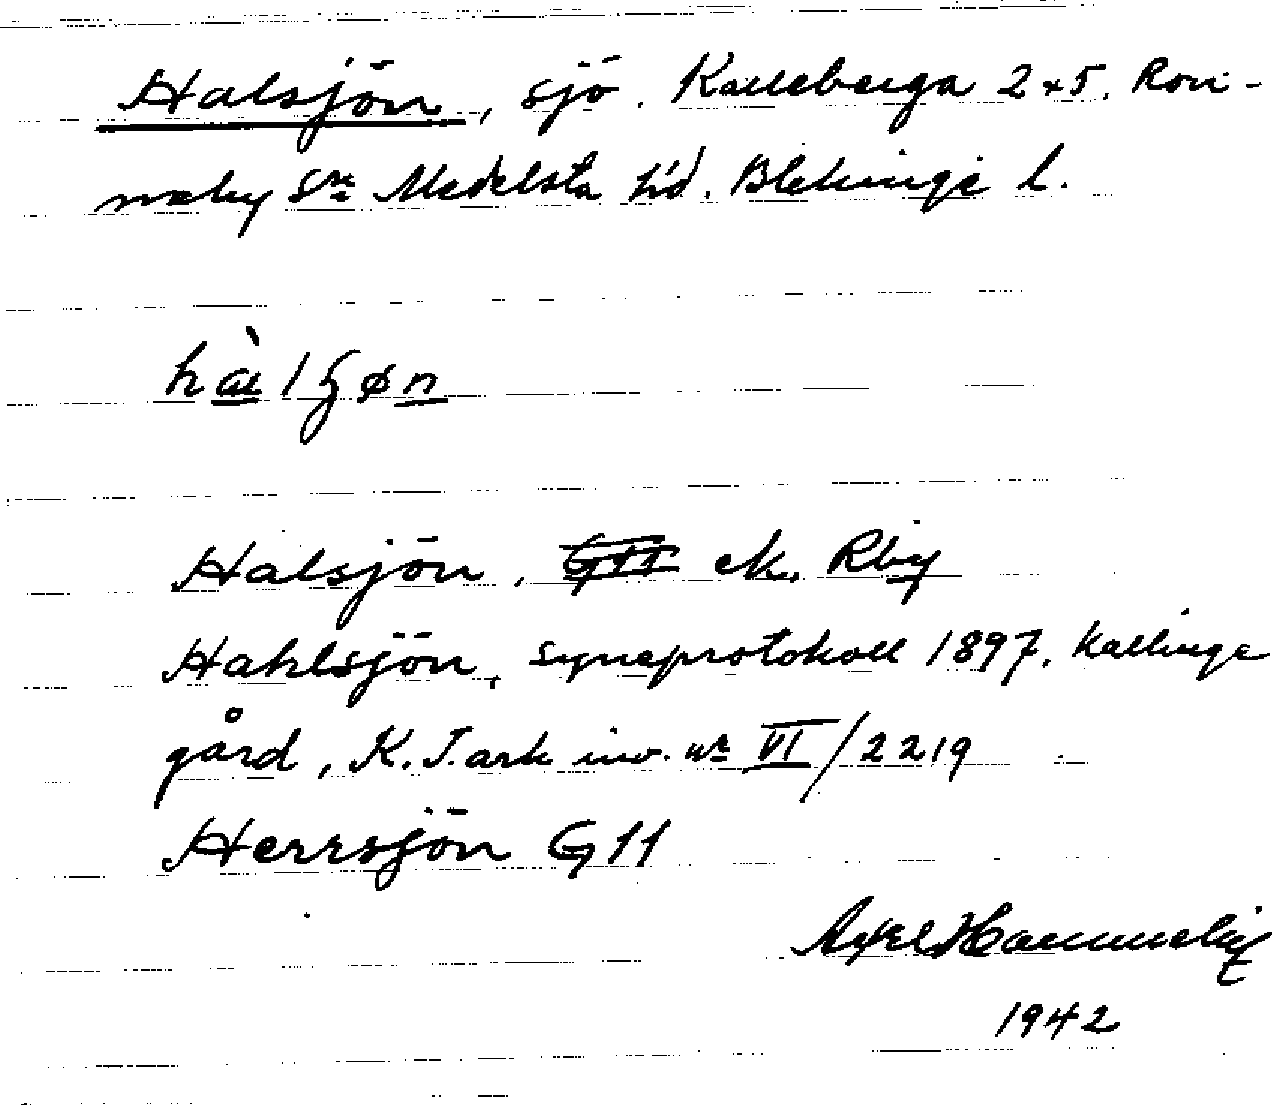 Halsjön, sjö. Kalleberga 2+5. Ron-
neby sn Medelsta hd. Blekinge l.
hàlʒøn
Halsjön, ek. Rby
Hahlsjön, Syneprotokoll 1897, Kallinge
gård, K.J.ark inv. nr VI/2219
Herrsjön G11
Axel
1942